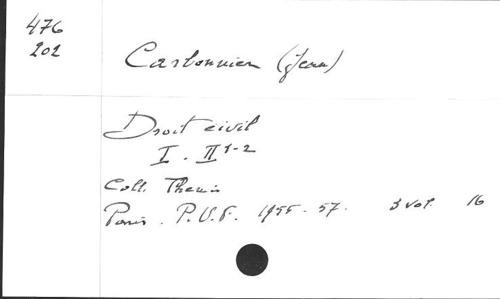 476
202
Carbonnier (Jean)
Droit civil
I. II 1-2
Coll. Thémis
Paris. P.U.F. 1955-57. 3 vol. 16